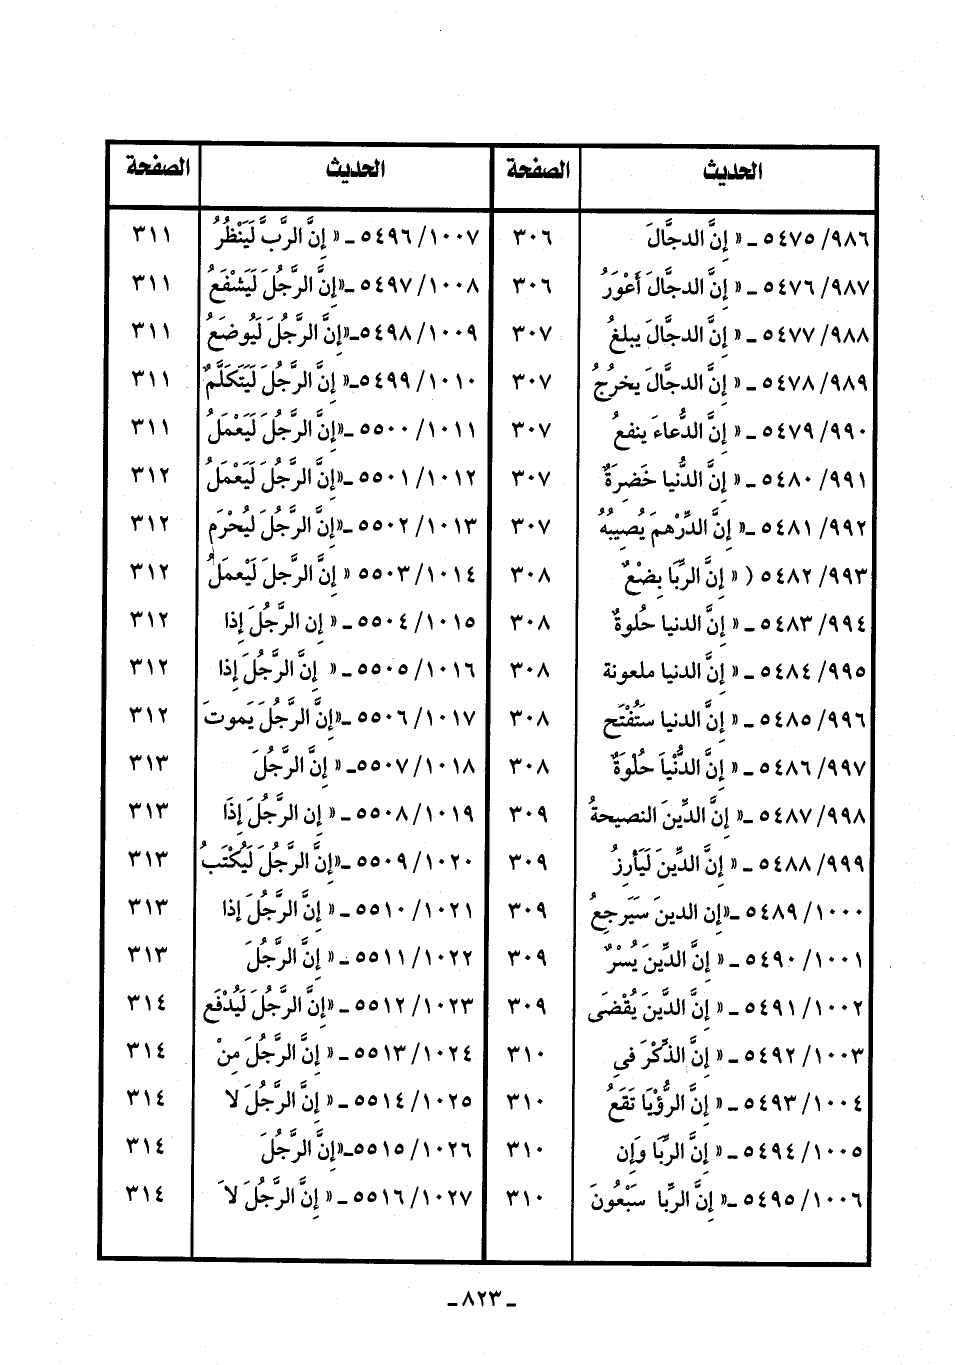 الحديث الصفحة الحديث الصفحة
٩٨٦/ ٥٤٧٥ ـ « إِنَّ الدجَّالَ ٣٠٦ ١٠٠٧/ ٥٤٩٦ ـ « إِنَّ الرَّبَّ لَيَنْظُرُ ٣١١
٩٨٧/ ٥٤٧٦ ـ « إِنَّ الدجَّالَ أَعْوَرُ ٣٠٦ ١٠٠٨/ ٥٤٩٧ ـ «إِنَّ الرَّجُلَ لَيَشْفَعُ ٣١١
٩٨٨/ ٥٤٧٧ ـ « إِنَّ الدجَّالَ يبلغُ ٣٠٧ ١٠٠٩/ ٥٤٩٨ـ «إِنَّ الرَّجُلَ لَيُوضَعُ ٣١١
٩٨٩/ ٥٤٧٨ ـ « إِنَّ الدجَّالَ يخرُجُ ٣٠٧ ١٠١٠/ ٥٤٩٩ـ « إِنَّ الرَّجُلَ لَيَتَكَلَّمُ ٣١١
٩٩٠/ ٥٤٧٩ ـ « إِنَّ الدُّعاءَ ينفعُ ٣٠٧ ١٠١١/ ٥٥٠٠ ـ «إِنَّ الرَّجُلَ لَيَعْمَلُ ٣١١
٩٩١/ ٥٤٨٠ ـ « إِنَّ الدُّنيا خَضِرَةٌ ٣٠٧ ١٠١٢/ ٥٥٠١ ـ «إِنَّ الرَّجُلَ لَيَعْمَلُ ٣١٢
٩٩٢/ ٥٤٨١ ـ « إِنَّ الدِّرْهمَ يُصِيبُهُ ٣٠٧ ١٠١٣/ ٥٥٠٢ ـ «إِنَّ الرَّجُلَ ليُحْرَم ٣١٢
٩٩٣/ ٥٤٨٢ ( « إِنَّ الرِّبَا بِضْعٌ ٣٠٨ ١٠١٤/ ٥٥٠٣ « إِنَّ الرَّجلَ لَيْعملَُ ٣١٢
٩٩٤/ ٥٤٨٣ ـ « إِنَّ الدنيا حُلوةٌ ٣٠٨ ١٠١٥/ ٥٥٠٤ ـ « إِن الرَّجُلَ إِذا ٣١٢
٩٩٥/ ٥٤٨٤ ـ « إِنَّ الدنيا ملعونة ٣٠٨ ١٠١٦/ ٥٥٠٥ ـ « إِنَّ الرَّجُلَ إِذا ٣١٢
٩٩٦/ ٥٤٨٥ ـ « إِنَّ الدنيا سَتُفْتَح ٣٠٨ ١٠١٧/ ٥٥٠٦ ـ «إِنَّ الرَّجُلَ يَموتَ ٣١٢
٩٩٧/ ٥٤٨٦ ـ « إِنَّ الدُّنْيَا حُلْوَةٌ ٣٠٨ ١٠١٨/ ٥٥٠٧ـ « إِنَّ الرَّجُلَ ٣١٣
٩٩٨/ ٥٤٨٧ ـ « إِنَّ الدِّينَ النصيحةُ ٣٠٩ ١٠١٩/ ٥٥٠٨ ـ « إِن الرَّجُلَ إِذَا ٣١٣
٩٩٩/ ٥٤٨٨ ـ « إِنَّ الدِّينَ لَيَأْرِزُ ٣٠٩ ١٠٢٠/ ٥٥٠٩ ـ «إِنَّ الرَّجُلَ لَيُكْتَبُ ٣١٣
١٠٠٠/ ٥٤٨٩ ـ «إِن الدينَ سَيَرجِعُ ٣٠٩ ١٠٢١/ ٥٥١٠ ـ « إِنَّ الرَّجُلَ إذا ٣١٣
١٠٠١/ ٥٤٩٠ ـ « إِنَّ الدِّينَ يُسْرٌ ٣٠٩ ١٠٢٢/ ٥٥١١ ـ « إِنَّ الرَّجُلَ ٣١٣
١٠٠٢/ ٥٤٩١ ـ « إِنَّ الدَّينَ يُقْضَى ٣٠٩ ١٠٢٣/ ٥٥١٢ ـ «إِنَّ الرَّجُلَ لَيُدْفَع ٣١٤
١٠٠٣/ ٥٤٩٢ ـ « إِنَّ الذِّكْرَ فىِ ٣١٠ ١٠٢٤/ ٥٥١٣ ـ « إِنَّ الرَّجُلَ مِنْ ٣١٤
١٠٠٤/ ٥٤٩٣ ـ « إِنَّ الرُّؤْيَا تَقَعُ ٣١٠ ١٠٢٥/ ٥٥١٤ ـ « إِنَّ الرَّجُلَ لا ٣١٤
١٠٠٥/ ٥٤٩٤ ـ « إِنَّ الرِّبَا وَإِن ٣١٠ ١٠٢٦/ ٥٥١٥ـ «إِنَّ الرَّجُلَ ٣١٤
١٠٠٦/ ٥٤٩٥ ـ « إِنَّ الرِّبا سَبْعُونَ ٣١٠ ١٠٢٧/ ٥٥١٦ ـ « إِنَّ الرَّجُلَ لاَ ٣١٤
ـ ٨٢٣ ـ